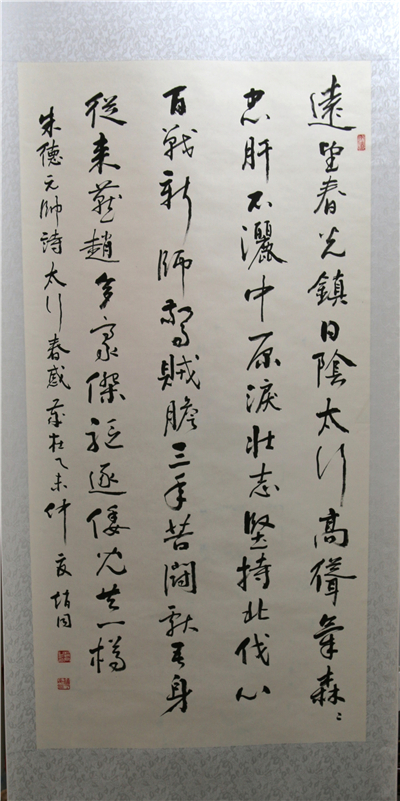 遠望春光鎮日陰太行高聳氣森〻
忠肝不灑中原淚壯志堅持北伐心
百戰新師驚賊膽三年苦鬪獻吾身
從來燕趙多豪傑驅逐倭兒共一樽
朱德元帥詩太行春感歲在乙未仲夏